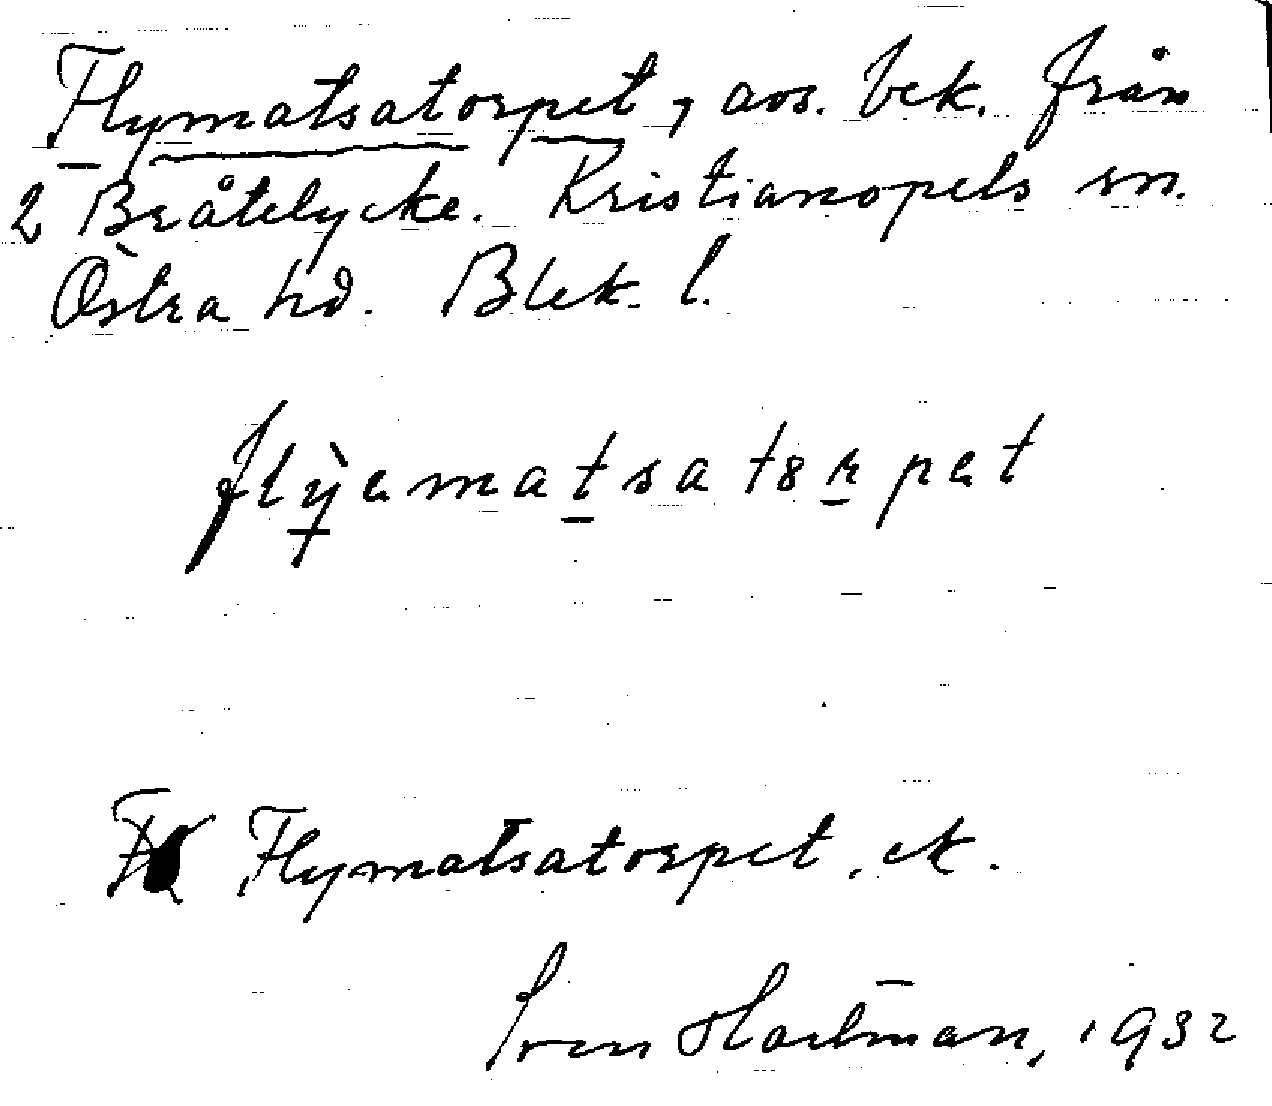 Flymatsatorpet, avs. bek. från
2 Bråtelycke. Kristianopels sn.
Östra hd. Blek. l.
flỳamatsatɵrpat
Flymatsatorpet, ek.
Sven Hartman, 1932